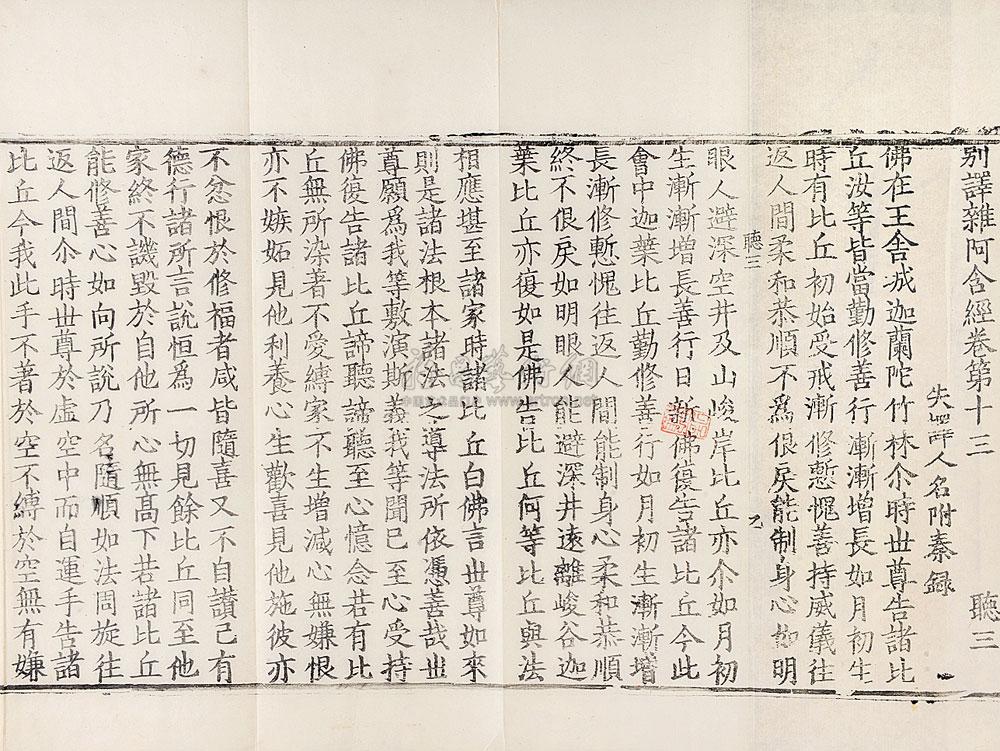 別譯雜阿含經卷第十三　聽三
失譯人名附秦錄
佛在王舍城迦蘭陀竹林尒時世尊告諸比
丘汝等皆當勤修善行漸漸增長如月初生
時有比丘初始受戒漸修慙愧善持威儀往
返人間柔和恭順不爲佷戾能制身心如明
聽三
眼人避深空井及山峻岸比丘亦尒如月初
生漸漸增長善行日新佛復告諸比丘今此
會中迦葉比丘勤修善行如月初生漸漸增
長漸修慙愧往返人間能制身心柔和恭順
終不佷戾如明眼人能避深井遠離峻谷迦
葉比丘亦復如是佛告比丘何等比丘與法
相應堪至諸家時諸比丘白佛言世尊如來
則是諸法根本諸法之導法所依憑善哉世
尊願爲我等敷演斯義我等聞已至心受持
佛復告諸比丘諦聽諦聽至心憶念若有比
丘無所染著不愛縛家不生增減心無嫌恨
亦不嫉妬見他利養心生歡喜見他施彼亦
不忿恨於修福者咸皆隨喜又不自讃己有
德行諸所言說恒爲一切見餘比丘同至他
家終不譏毀於自他所心無髙下若諸比丘
能修善心如向所說乃名隨順如法周旋往
返人間尒時世尊於虛空中而自運手告諸
比丘今我此手不著於空不縛於空無有嫌